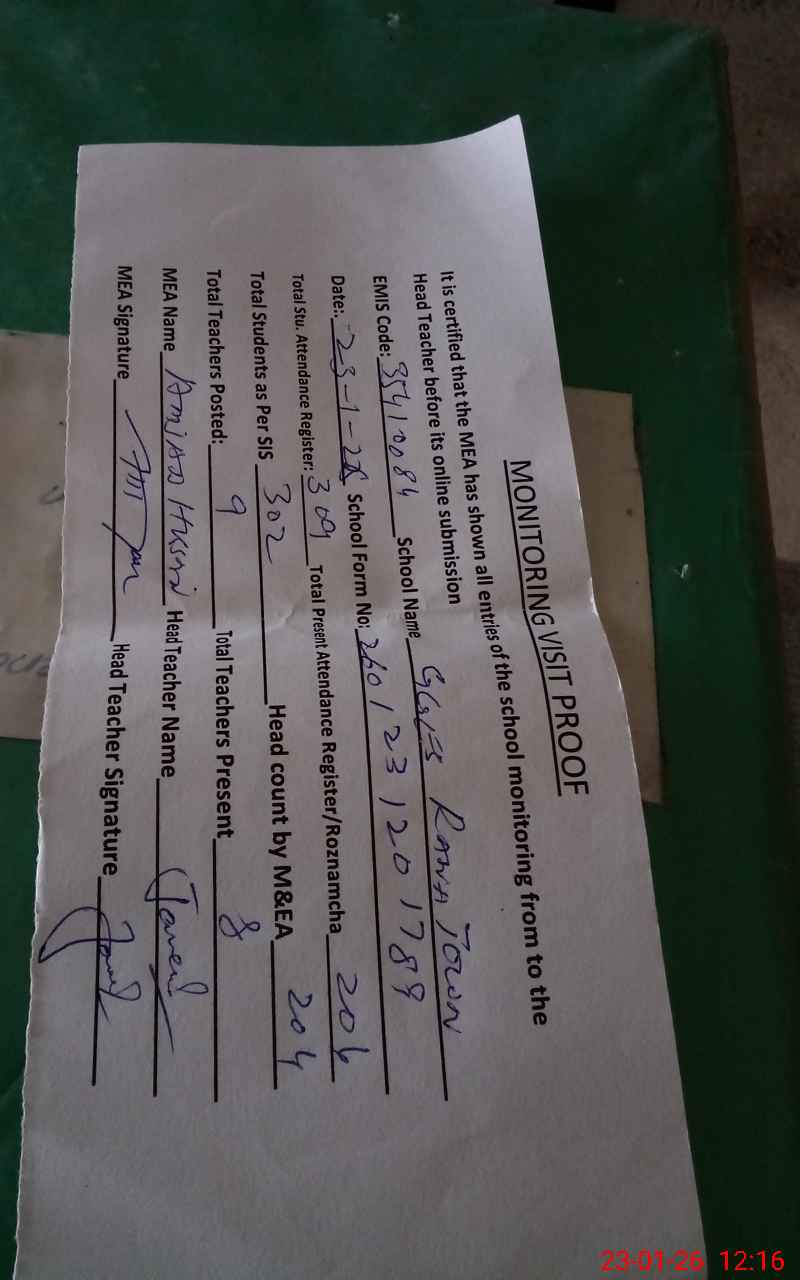 MONITORING VISIT PROOF
It is certified that the MEA has shown all entries of the school monitoring from to the
Head Teacher before its online submission
EMIS Code: 35410084 School Name Rana Town
Date:. 23-1-26 School Form No: 2601231201789
Total Stu. Attendance Register: 309 Total Present Attendance Register/Roznamcha 206
Total Students as Per SIS 302 Head count by M&EA 204
Total Teachers Posted: 9 Total Teachers Present 8
MEA Name Amjad Hussain Head Teacher Name
MEA Signature Head Teacher Signature
23-01-26 12:16